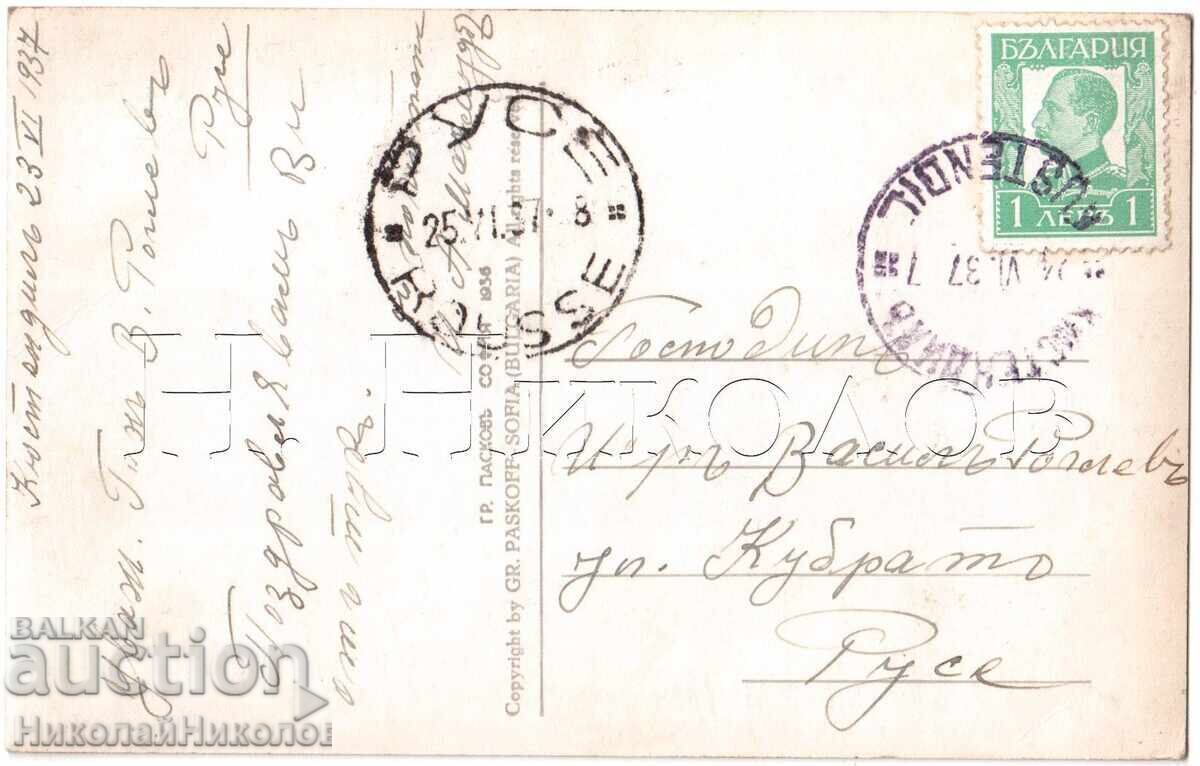 Кюстендилъ 23 VI 1937
Уваж. Г-нъ В. Рашевъ
Русе
Поздравлявамъ Ви
отъ
ГР. ПАСКОВЪ СОФИЯ 1936
Copyright by GR. PASKOFF, SOFIA (BULGARIA) All rights reserved
РУСЕ
25.VI.37 - 8
ROUSSE
БЪЛГАРИЯ
1 ЛЕВЪ 1
KUSTENDIL
24.VI.37 7
КЮСТЕНДИЛЪ
Господинъ
Василъ
ул. Кубратъ
Русе
Н. НИКОЛОВ
BALKAN
auction
НиколайНиколов